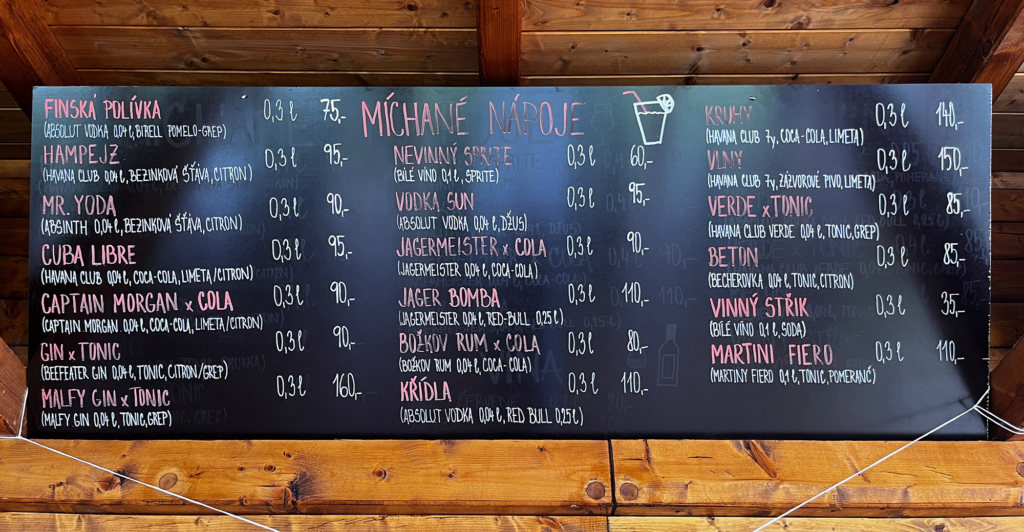 MÍCHANÉ NÁPOJE
FINSKÁ POLÍVKA 0,3 ℓ 75,-
(ABSOLUT VODKA 0,04 ℓ, BIRELL POMELO-GREP)
HAMPEJZ 0,3 ℓ 95,-
(HAVANA CLUB 0,04 ℓ, BEZINKOVÁ ŠŤÁVA, CITRON)
MR. YODA 0,3 ℓ 90,-
(ABSINTH 0,04 ℓ, BEZINKOVÁ ŠŤÁVA, CITRON)
CUBA LIBRE 0,3 ℓ 95,-
(HAVANA CLUB 0,04 ℓ, COCA-COLA, LIMETA/CITRON)
CAPTAIN MORGAN x COLA 0,3 ℓ 90,-
(CAPTAIN MORGAN 0,04 ℓ, COCA-COLA, LIMETA/CITRON)
GIN x TONIC 0,3 ℓ 90,-
(BEEFEATER GIN 0,04 ℓ, TONIC, CITRON/GREP)
MALFY GIN x TONIC 0,3 ℓ 160,-
(MALFY GIN 0,04 ℓ, TONIC, GREP)
NEVINNÝ SPRITE 0,3 ℓ 60,-
(BÍLÉ VÍNO 0,1 ℓ, SPRITE)
VODKA SUN 0,3 ℓ 95,-
(ABSOLUT VODKA 0,04 ℓ, DŽUS)
JAGERMEISTER x COLA 0,3 ℓ 90,-
(JAGERMEISTER 0,04 ℓ, COCA-COLA)
JAGER BOMBA 0,3 ℓ 110,-
(JAGERMEISTER 0,04 ℓ, RED-BULL 0,25 ℓ)
BOŽKOV RUM x COLA 0,3 ℓ 80,-
(BOŽKOV RUM 0,04 ℓ, COCA-COLA)
KŘÍDLA 0,3 ℓ 110,-
(ABSOLUT VODKA 0,04 ℓ, RED BULL 0,25 ℓ)
KRUHY 0,3 ℓ 140,-
(HAVANA CLUB 7y, COCA-COLA, LIMETA)
VLNY 0,3 ℓ 150,-
(HAVANA CLUB 7y, ZÁZVOROVÉ PIVO, LIMETA)
VERDE x TONIC 0,3 ℓ 85,-
(HAVANA CLUB VERDE 0,04 ℓ, TONIC, GREP)
BETON 0,3 ℓ 85,-
(BECHEROVKA 0,04 ℓ, TONIC, CITRON)
VINNÝ STŘIK 0,3 ℓ 35,-
(BÍLÉ VÍNO 0,1 ℓ, SODA)
MARTINI FIERO 0,3 ℓ 110,-
(MARTINY FIERO 0,1 ℓ, TONIC, POMERANČ)